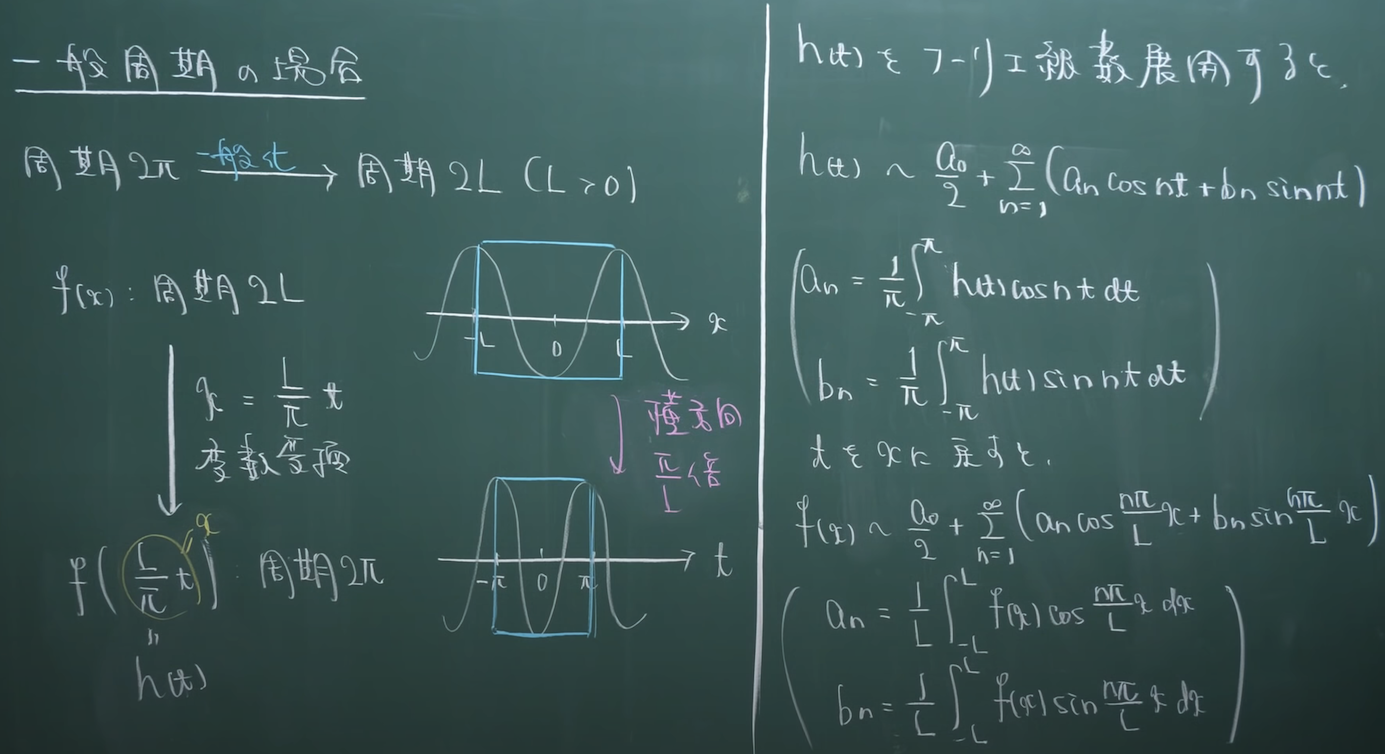 一般周期の場合
周期2π 一般化→ 周期2L (L>0)
f(x): 周期2L
x
-L 0 L
x = L/π t
変数変換
横方向
π/L 倍
x
f(L/π t): 周期2π
t
-π 0 π
〃
h(t)
h(t)をフーリエ級数展開すると、
h(t) ~ a0/2 + Σ_{n=1}^{∞} (an cos nt + bn sin nt)
(an = 1/π ∫_{-π}^{π} h(t) cos nt dt
bn = 1/π ∫_{-π}^{π} h(t) sin nt dt)
tをxに戻すと、
f(x) ~ a0/2 + Σ_{n=1}^{∞} (an cos nπ/L x + bn sin nπ/L x)
(an = 1/L ∫_{-L}^{L} f(x) cos nπ/L x dx
bn = 1/L ∫_{-L}^{L} f(x) sin nπ/L x dx)